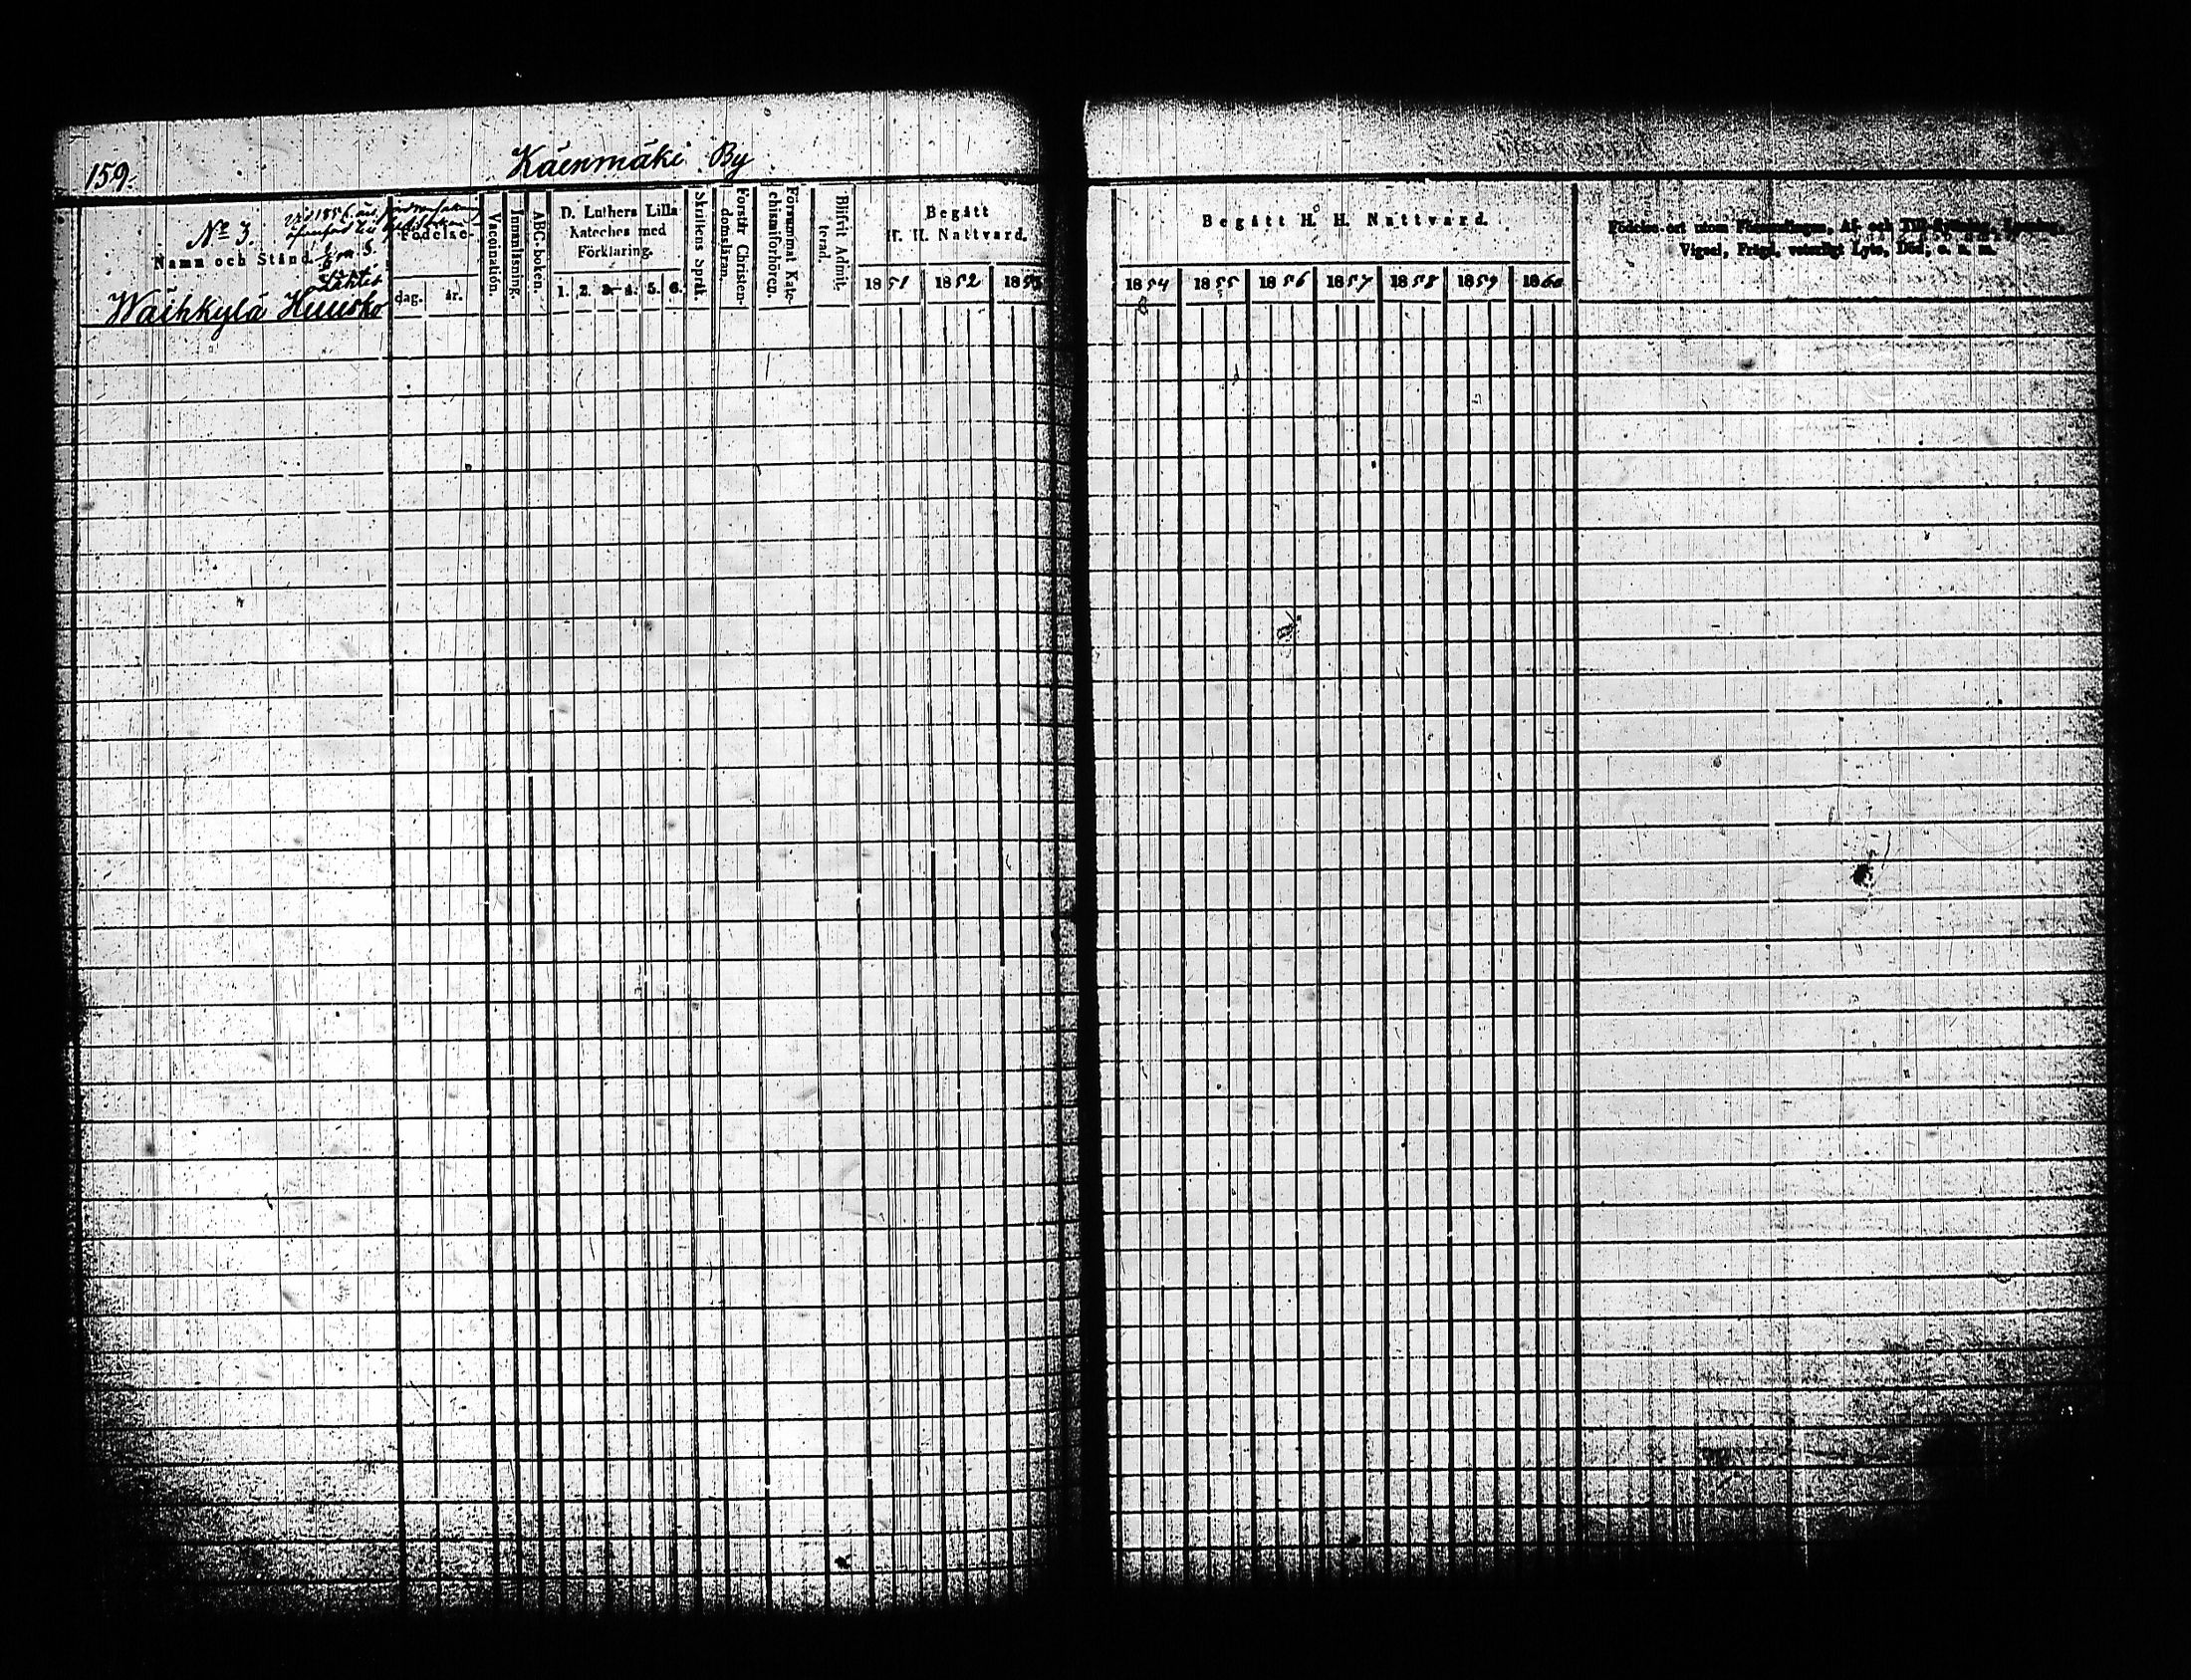 159.
Käenmäki By
Nº 3.
Namn och Stånd.
Lähtis
Wäihkylä Huusko
Födelse-
dag. år.
Vaccination.
Innanläsning.
ABC-boken.
D. Luthers Lilla
Kateches med
Förklaring.
1. 2. 3. 4. 5. 6.
Skriftens Språk.
Förstår Christen-
domsläran.
Försummat Kate-
chismiförhören.
Blifvit Admit-
terad.
Begått
H. H. Nattvard.
1851 1852 1853
Begått H. H. Nattvard.
1854 1855 1856 1857 1858 1859 1860
Födelse-ort utom Församlingen, Af- och Till-flyttning,
Vigsel, Frägd, veterligt Lyte, Död, o. s. m.